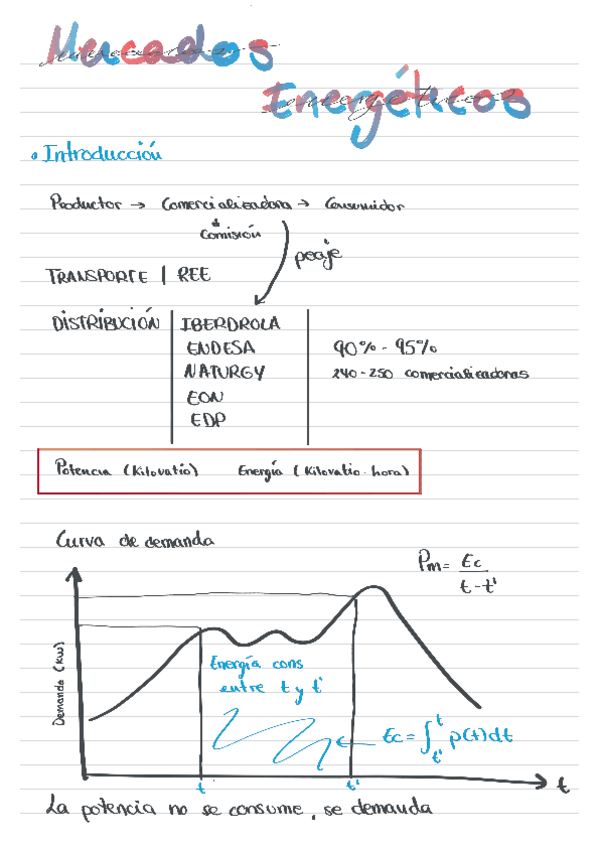 Mercados
Energéticos
• Introducción
Productor → Comercializadora → Consumidor
+
Comisión
peaje
TRANSPORTE | REE
DISTRIBUCIÓN | IBERDROLA
ENDESA 90% - 95%
NATURGY 240-250 comercializadoras
EON
EDP
Potencia (Kilovatio) Energía (Kilovatio · hora)
Curva de demanda
Pm = Ec / t - t'
Demanda (KW)
Energía cons
entre t y t'
Ec = ∫ t t' p(t)dt
t t' t
La potencia no se consume, se demanda